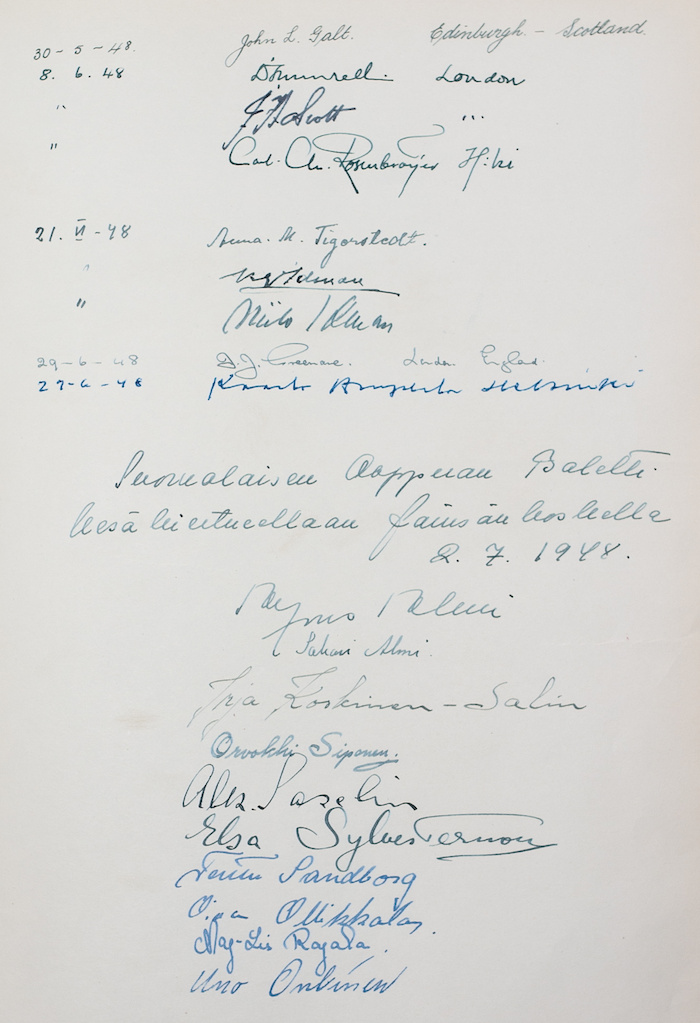 30-5-48. John L. Galt. Edinburgh. - Scotland.
8. 6. 48 London
" Scott "
" Col. Chr. Rosenbröijer H:ki
21. VI - 48 Anna. M. Tigerstedt.
"
" Niilo
29-6-48 D. J. London. England.
27-6-48 Kaarlo Helsinki
Suomalaisen Oopperan Baletti
kesäkiertueellaan Jämsänkoskella
2. 7. 1948.
Sakari Almi.
Irja Koskinen - Salin
Orvokki Siponen.
Alex. Saxelin
Elsa Sylvesternon
Sandborg
Ollikkala,
May-Lis Rajala.
Uno Onkinen